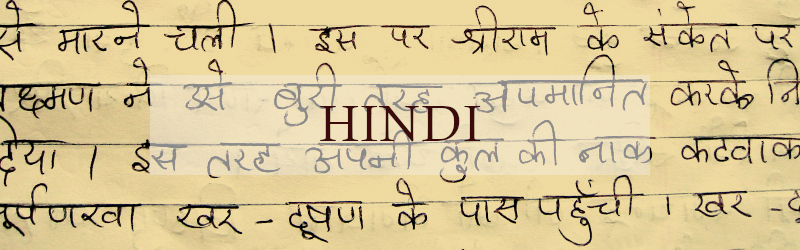 से मारने चली । इस पर श्रीराम के संकेत पर
क्ष्मण ने उसे बुरी तरह अपमानित करके नि
HINDI
देया । इस तरह अपनी कुल की नाक कटवाक
ूर्पणखा खर - दूषण के पास पहुँची । खर -